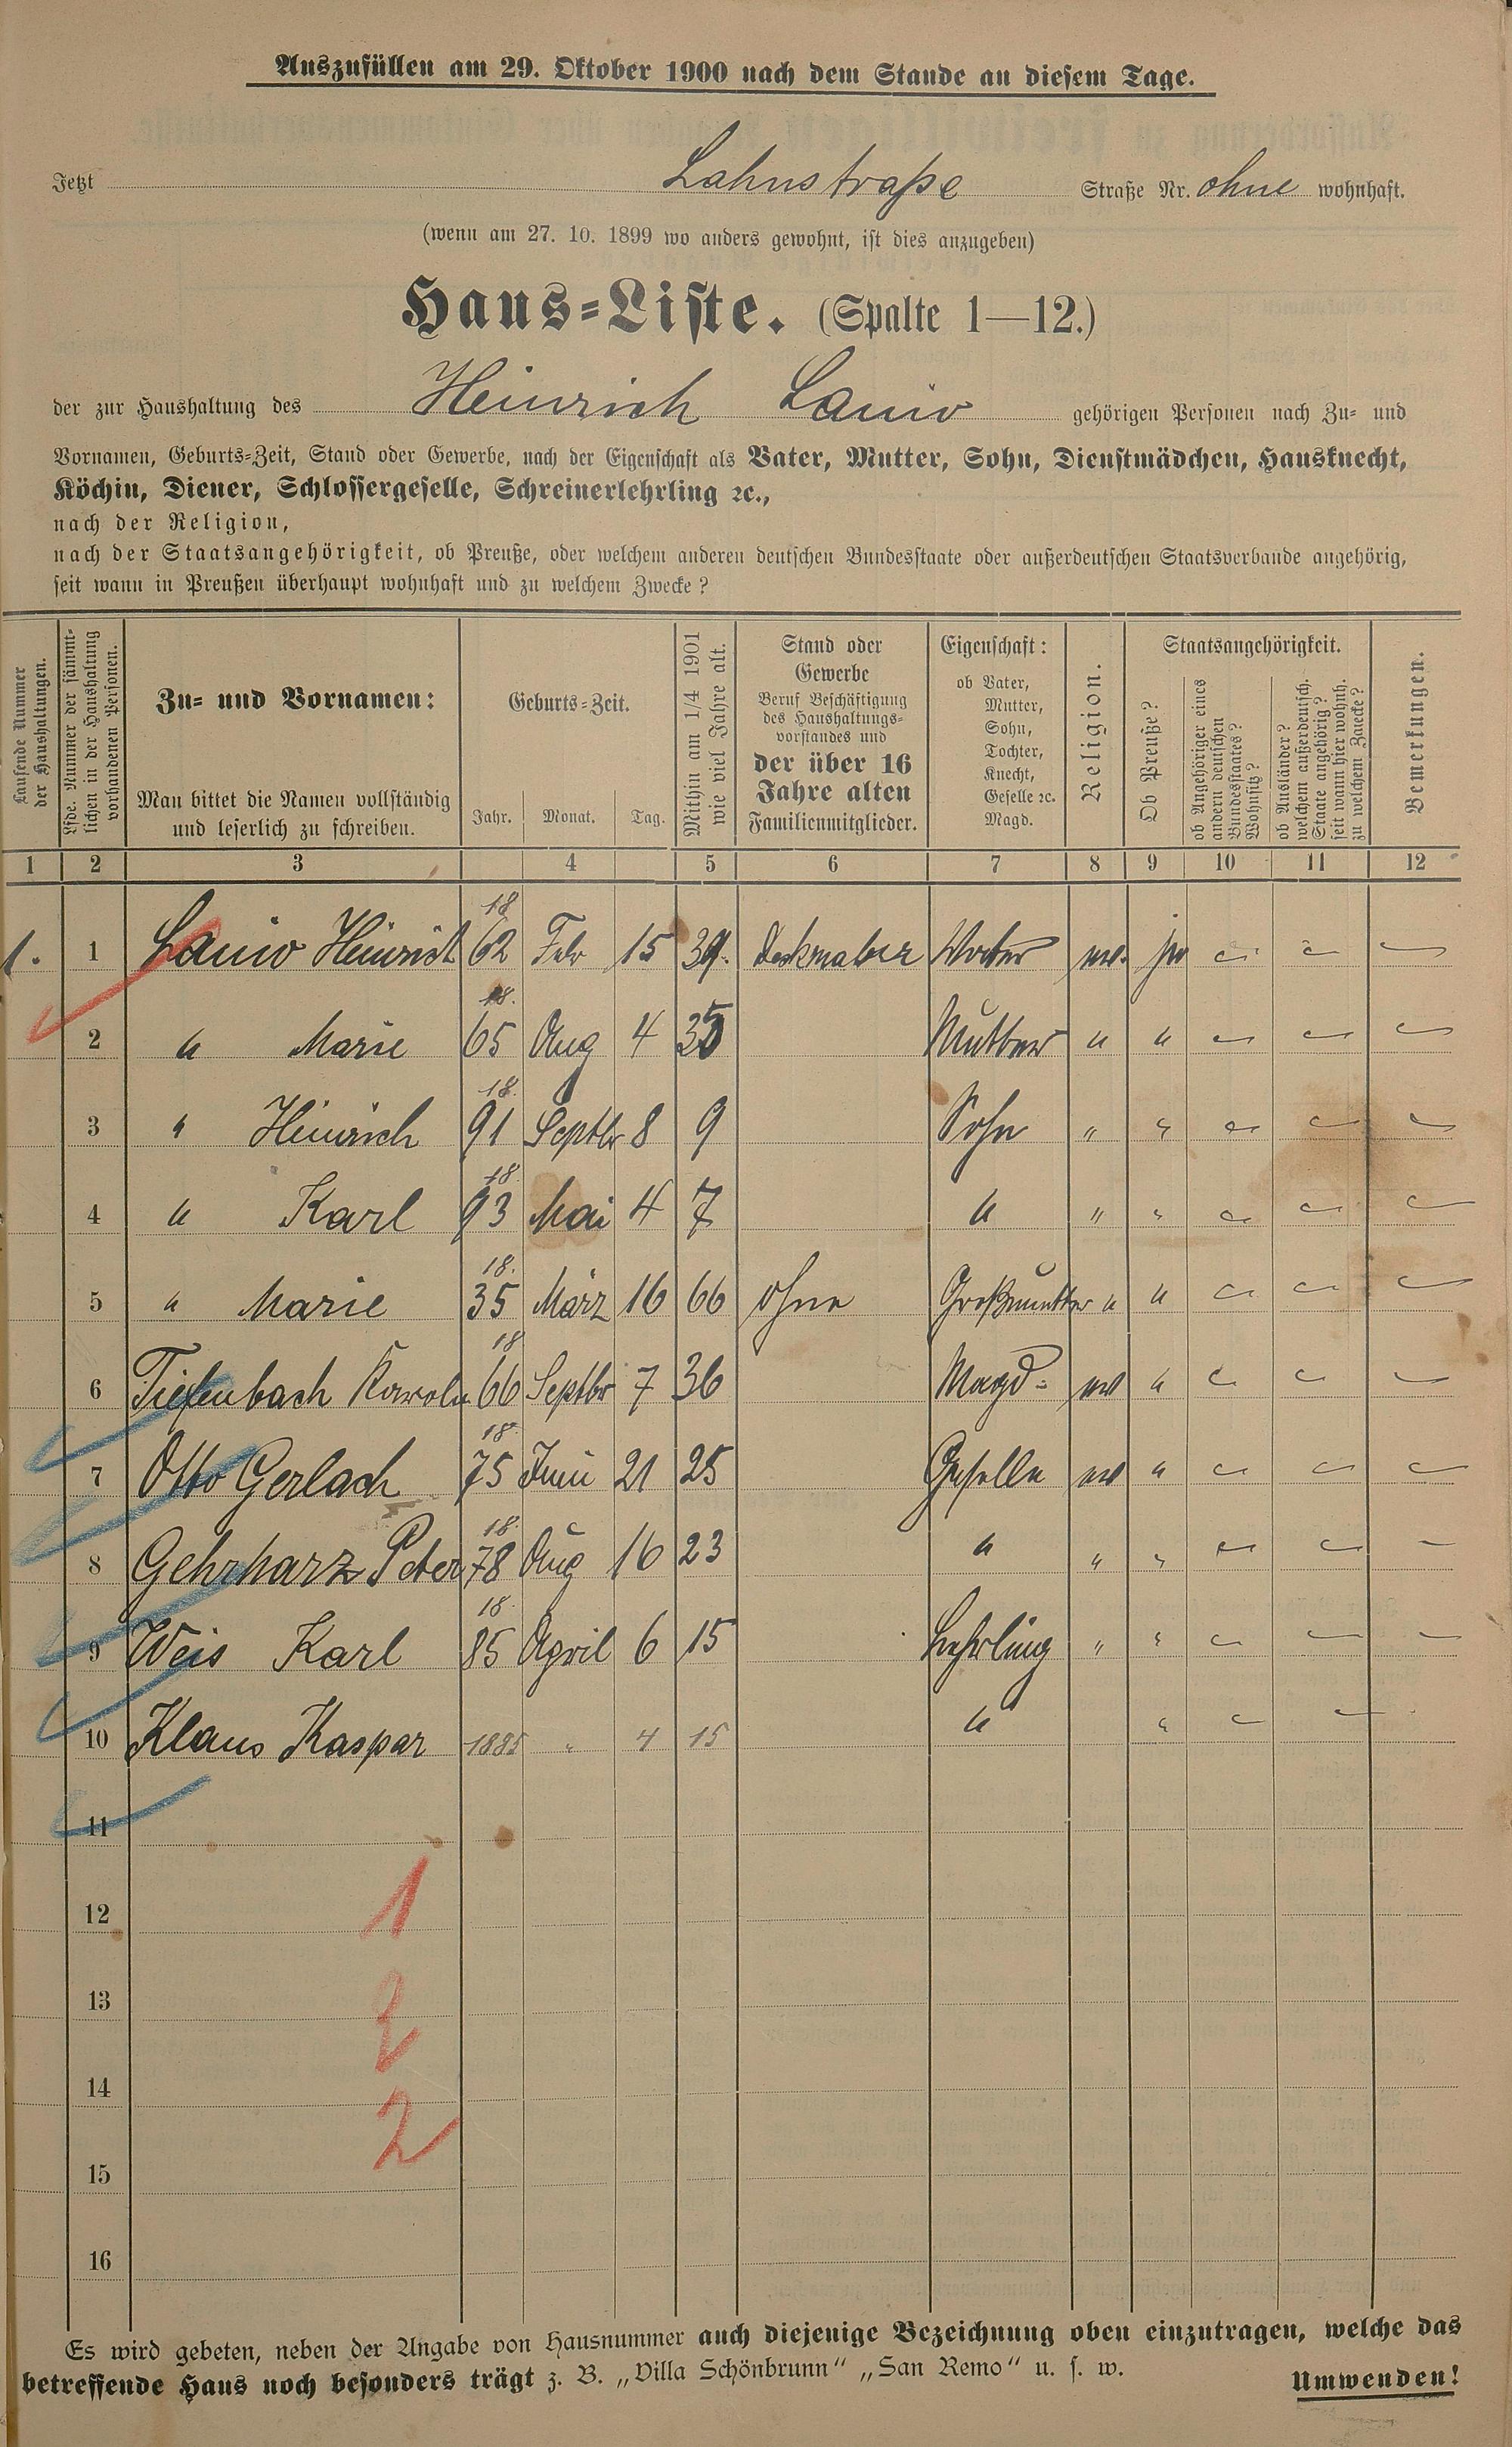 Auszufüllen am 29. Oktober 1900 nach dem Stande an diesem Tage.
Jetzt Lahnstraße Straße Nr. ohne wohnhaft.
(wenn am 27. 10. 1899 wo anders gewohnt, ist dies anzugeben)
Haus-Liste. (Spalte 1—12.)
der zur Haushaltung des Heinrich gehörigen Personen nach Zu- und
Vornamen, Geburts-Zeit, Stand oder Gewerbe, nach der Eigenschaft als Vater, Mutter, Sohn, Dienstmädchen, Hausknecht,
Köchin, Diener, Schlossergeselle, Schreinerlehrling ꝛc.,
nach der Religion,
nach der Staatsangehörigkeit, ob Preuße, oder welchem anderen deutschen Bundesstaate oder außerdeutschen Staatsverbande angehörig,
seit wann in Preußen überhaupt wohnhaft und zu welchem Zwecke?
Laufende Nummer
der Haushaltungen.
Lfde. Nummer der sämmt-
lichen in der Haushaltung
vorhandenen Personen.
Zu- und Vornamen:
Man bittet die Namen vollständig
und leserlich zu schreiben.
Geburts-Zeit.
Jahr. Monat. Tag.
Mithin am 1/4 1901
wie viel Jahre alt.
Stand oder
Gewerbe
Beruf Beschäftigung
des Haushaltungs-
vorstandes und
der über 16
Jahre alten
Familienmitglieder.
Eigenschaft:
ob Vater,
Mutter,
Sohn,
Tochter,
Knecht,
Geselle ꝛc.
Magd.
Religion.
Staatsangehörigkeit.
Ob Preuße?
ob Angehöriger eines
andern deutschen
Bundesstaates?
Wohnsitz?
ob Ausländer?
welchem außerdeutsch.
Staate angehörig?
seit wann hier wohnh.
zu welchem Zwecke?
Bemerkungen.
1 2 3 4 5 6 7 8 9 10 11 12
1. 1 Heinrich 18 62 Febr 15 39. Vater ev. ja
2 " Marie 18. 65 Aug 4 35 Mutter " "
3 " Heinrich 18. 91 Septbr 8 9 Sohn " "
4 " Karl 18. 93 Mai 4 7 " " "
5 " Marie 18. 35 März 16 66 ohne Großmutter " "
6 Tiefenbach 18 66 Septbr 7 36 Magd ev "
7 Otto Gerlach 18. 75 Juni 21 25 Geselle ev "
8 Gehrharz Peter 18. 78 Aug 16 23 " " "
9 Weis Karl 18. 85 April 6 15 Lehrling " "
10 Klaus Kaspar 1885 " 4 15 " "
11
12 1
13 2
14
15 2
16
Es wird gebeten, neben der Angabe von Hausnummer auch diejenige Bezeichnung oben einzutragen, welche das
betreffende Haus noch besonders trägt z. B. „Villa Schönbrunn“ „San Remo“ u. s. w.
Umwenden!